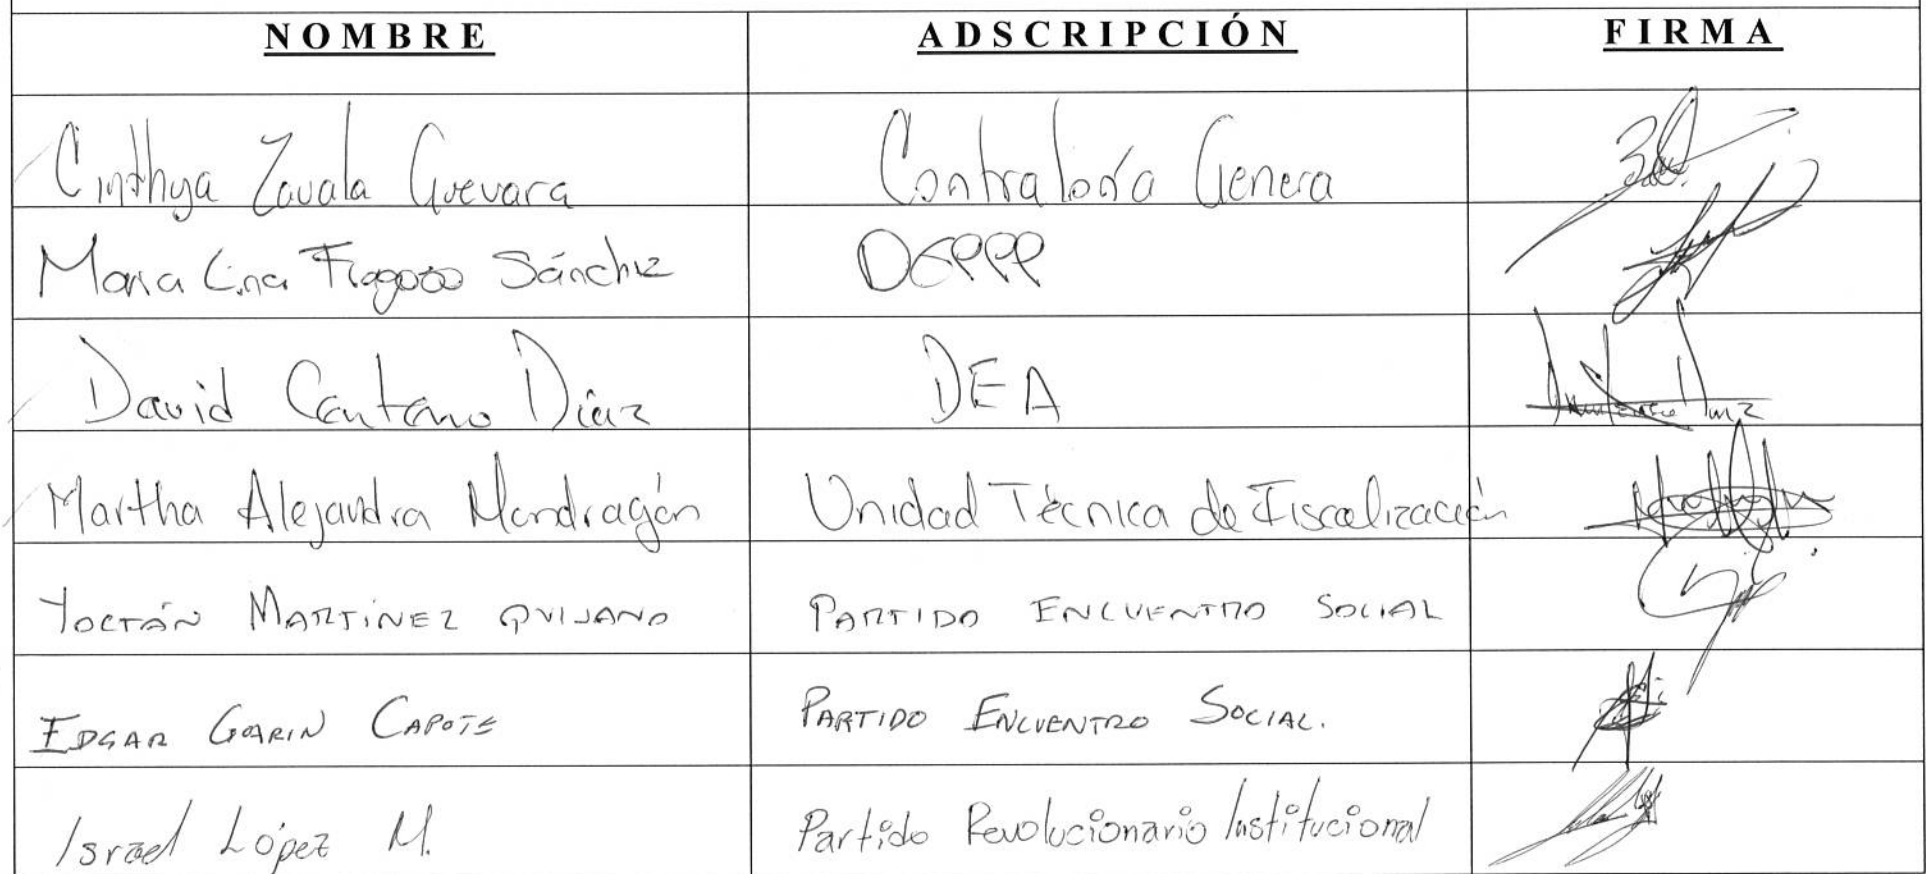 NOMBRE ADSCRIPCIÓN FIRMA
Cinthya Zavala Guevara Contraloría Genera
Maria Lina Fragoso Sánchez DGPPP
David Centeno Díaz DEA
Martha Alejandra Mondragón Unidad Técnica de Fiscalización
YOCTÁN MARTÍNEZ QUIJANO PARTIDO ENCUENTRO SOCIAL
EDGAR GARIN CAPOTE PARTIDO ENCUENTRO SOCIAL.
Israel López M. Partido Revolucionario Institucional